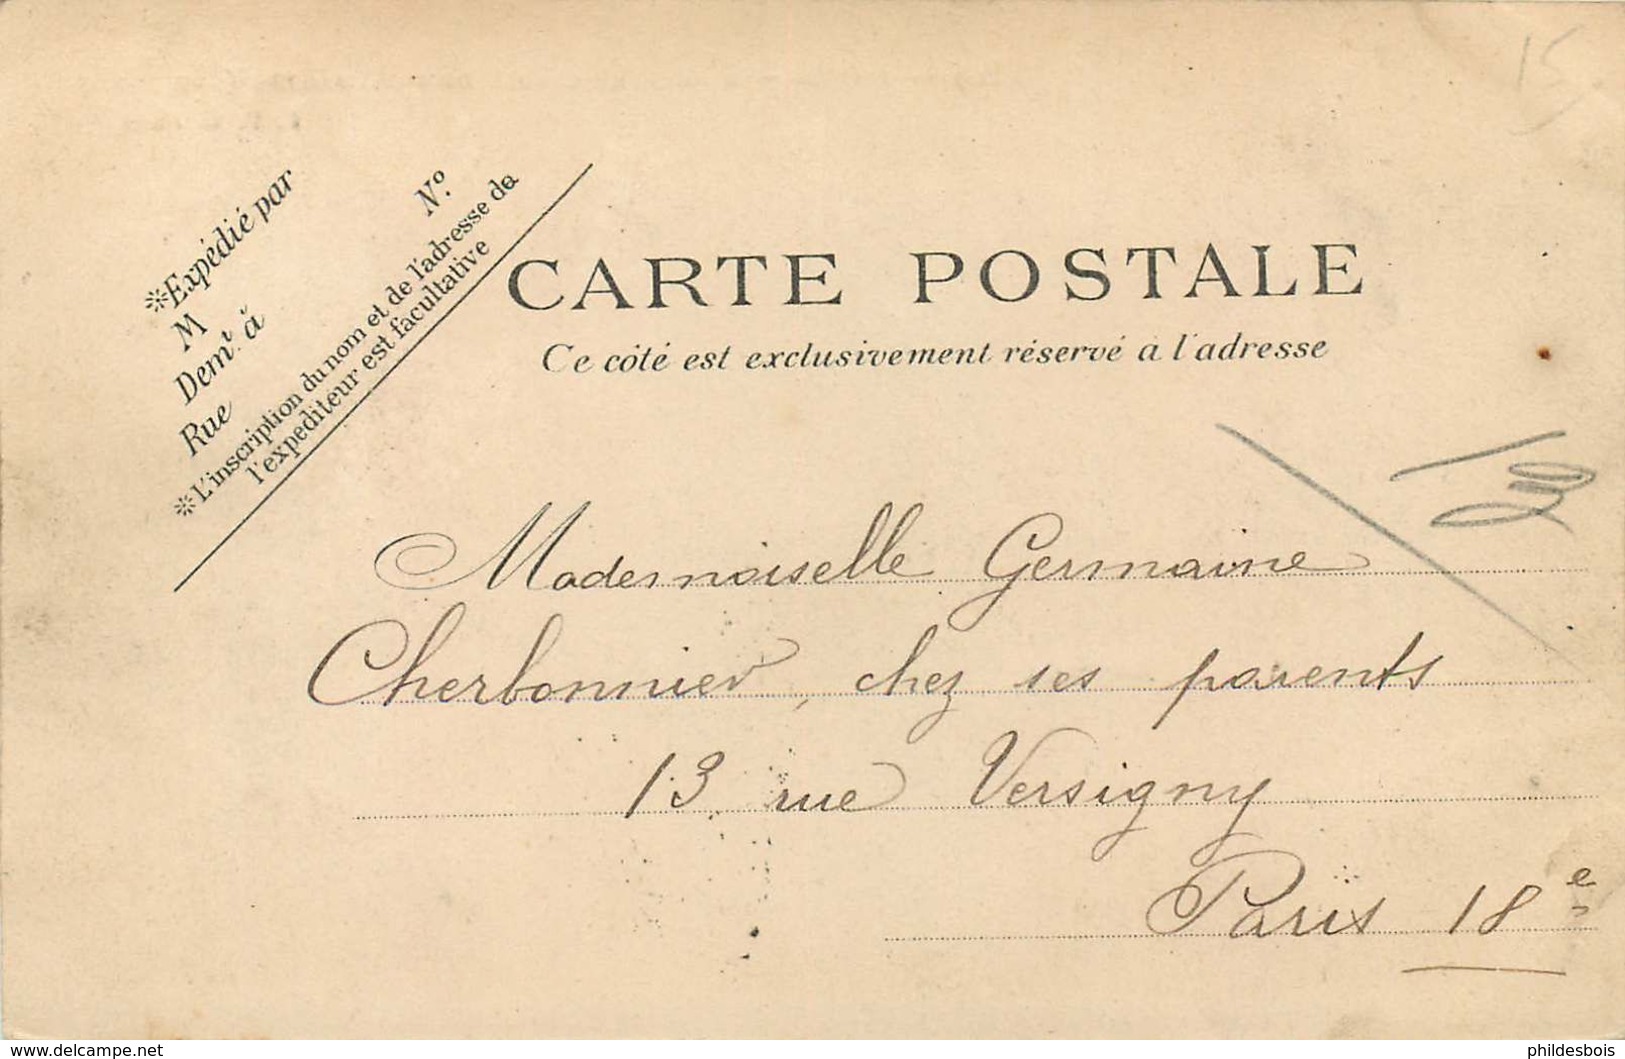 15
※Expédié par
M
Demt à
Rue
No.
※L'inscription du nom et de l'adresse de
l'expediteur est facultative
CARTE POSTALE
Ce côté est exclusivement réservé à l'adresse
Mademoiselle Germaine
Cherbonnier, chez ses parents
13 rue Versigny
Paris 18e
www.delcampe.net
phildesbois